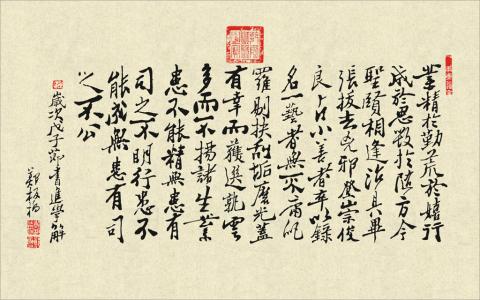 業精於勤荒於嬉行
成於思毀於隨方今
聖賢相逢治具畢
張拔去兇邪登崇俊
良占小善者率以錄
名一藝者無不庸爬
羅剔抉刮垢磨光蓋
有幸而獲選孰雲
多而不揚諸生業
患不能精無患有
司之不明行患不
能成無患有司
之不公
歲次戊子節書進學解